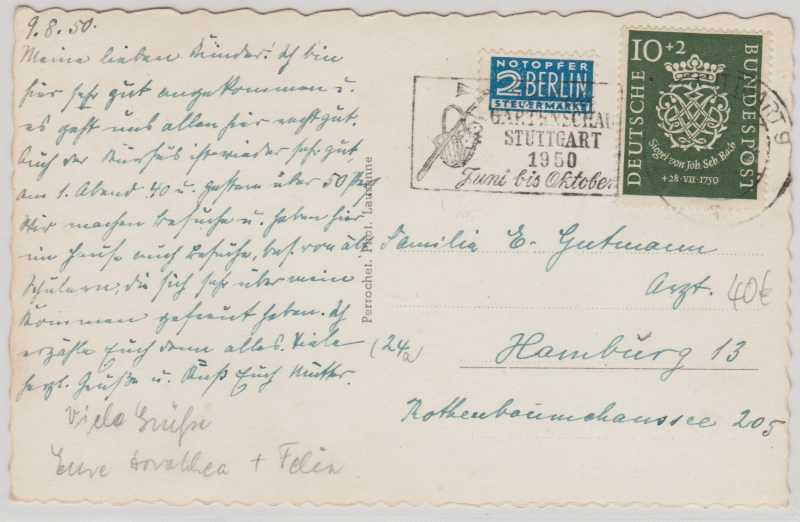 9.8.50.
Meine lieben Kinder! Ich bin
hier sehr gut angekommen u.
es geht uns allen hier recht gut.
Auch der Kursus ist wieder sehr gut,
am 1. Abend 40 u. gestern über 50
Wir machen Besuche u. haben hier
im Hause auch Besuche, bes. von alt.
Schülern, die sich sehr über mein
Kommen gefreut haben. Ich
erzähle Euch dann alles. Viele
herzl. Grüße u. Kuß Euch Mutter.
Viele Grüße
Eure Dorothea + Felix
Perrochet. Phot. Lausanne
NOTOPFER
2 BERLIN
STEUERMARKE
GARTENSCHAU
STUTTGART
1950
Juni bis Oktober
10+2
DEUTSCHE
BUNDESPOST
Siegel von Joh. Seb. Bach
+28·VII·1750
Familie E. Gutmann
Arzt.
40€
(24a)
Hamburg 13
Rothenbaumchaussee 205